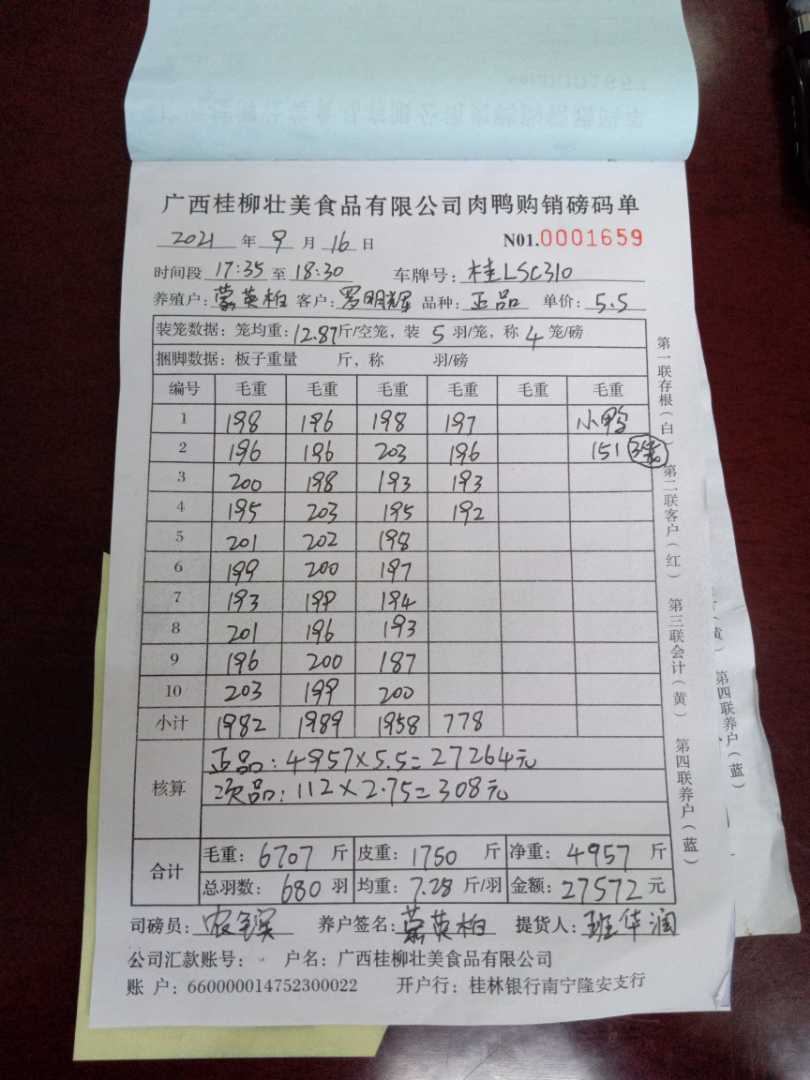 广西桂柳壮美食品有限公司肉鸭购销磅码单
2021 年 9 月 16 日 N01.0001659
时间段 17:35 至 18:30 车牌号：桂LSC310
养殖户：蒙英柏 客户：罗明辉 品种：正品 单价：5.5
装笼数据：笼均重：12.87斤/空笼，装 5 羽/笼，称 4 笼/磅
捆脚数据：板子重量 斤，称 羽/磅
编号 毛重 毛重 毛重 毛重 毛重 毛重
1 198 196 198 197 小鸭
2 196 196 203 196 151
3 200 198 193 193
4 195 203 195 192
5 201 202 198
6 199 200 197
7 193 199 194
8 201 196 193
9 196 200 187
10 203 199 200
小计 1982 1989 1958 778
核算
正品：4957×5.5=27264元
次品：112×2.75=308元
合计
毛重：6707 斤 皮重：1750 斤 净重：4957 斤
总羽数：680 羽 均重：7.28 斤/羽 金额：27572 元
司磅员：农 养户签名：蒙英柏 提货人：班华润
公司汇款账号： 户名：广西桂柳壮美食品有限公司
账 户：660000014752300022 开户行：桂林银行南宁隆安支行
第一联存根（白） 第二联客户（红） 第三联会计（黄） 第四联养户（蓝）
第四联养户（蓝）